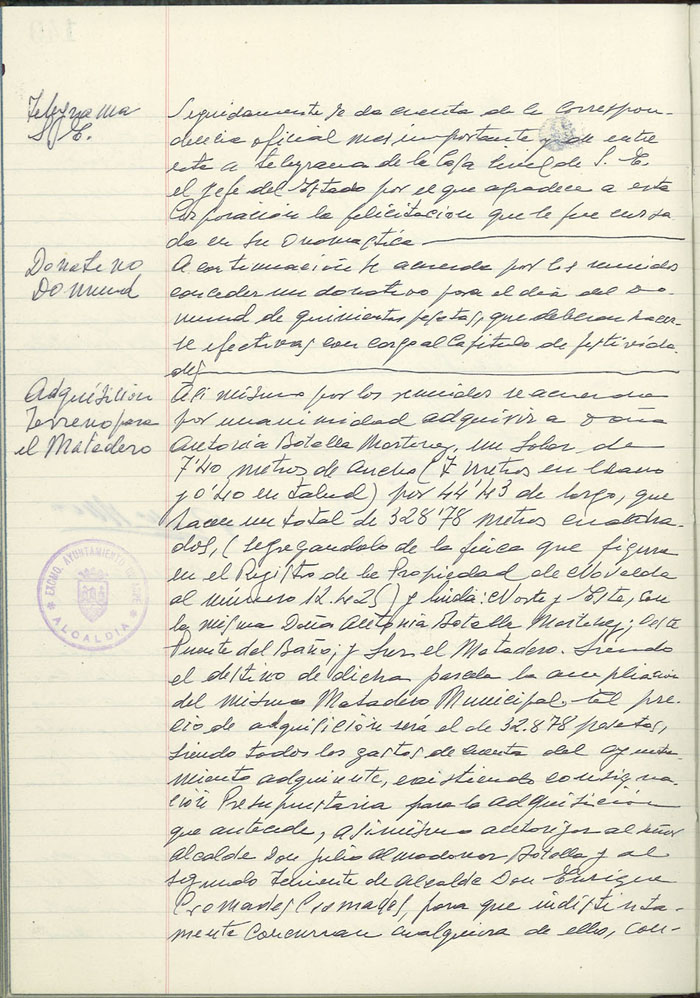 Telegrama
S. E.
Seguidamente se da cuenta de la correspon-
dencia oficial mas importante y
este a telegrama de la Casa Civil de S. E.
el Jefe del Estado por el que agradece a esta
Corporación la felicitacion que le fue cursa
da en su Onomastica
Donativo
Domund
A continuación se acuerda por los reunidos
conceder un donativo para el dia del Do-
mund de quinientas pesetas, que deberan hacer-
se efectivas con cargo al Capitulo de festivida-
des
Adquisicion
Terreno para
el Matadero
Asi mismo por los reunidos se acuerda
por unanimidad adquirir a Doña
Antonia Botella Martinez, un solar de
7'40 metros de ancho (7 metros en
y 0'40 en talud) por 44'43 de largo, que
hacen un total de 328'78 metros cuadra-
dos, (segregandolo de la finca que figura
en el Registro de la Propiedad de Novelda
al número 12.425) y linda: Norte y Este, con
la misma Doña Antonia Botella Martinez; Oeste
Puente del Baño; y Sur, el Matadero. Siendo
el destino de dicha parcela la ampliacion
del mismo Matadero Municipal. El pre-
cio de adquisición será el de 32.878 pesetas,
siendo todos los gastos de cuenta del Ayunta-
miento adquirente, existiendo consigna-
ción Presupuestaria para la adquisicion
que antecede, asimismo autorizar al señor
Alcalde Don Julio Almodovar Botella y al
segundo Teniente de Alcalde Don Enrique
Cremades Cremades, para que indistinta-
mente concurran cualquiera de ello, con-
EXCMO. AYUNTAMIENTO DE ASPE
ALCALDIA